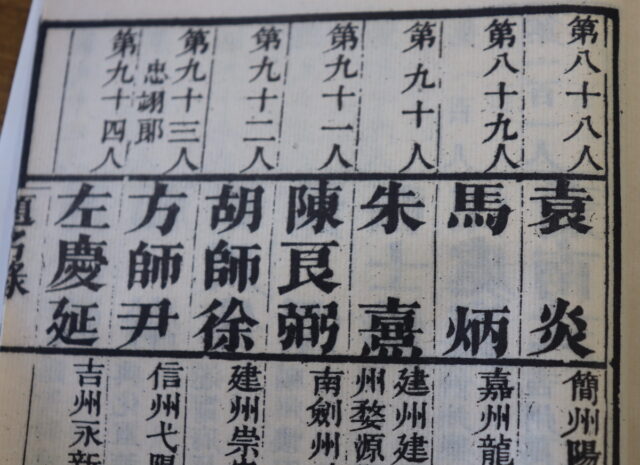 第八十八人
袁炎
簡州陽
第八十九人
馬炳
嘉州龍
第九十人
朱熹
建州建
州婺源
第九十一人
陳良弼
南劍州
第九十二人
胡師徐
建州崇
第九十三人
忠翊郎
方師尹
信州弋陽
第九十四人
左慶延
吉州永新
題名錄